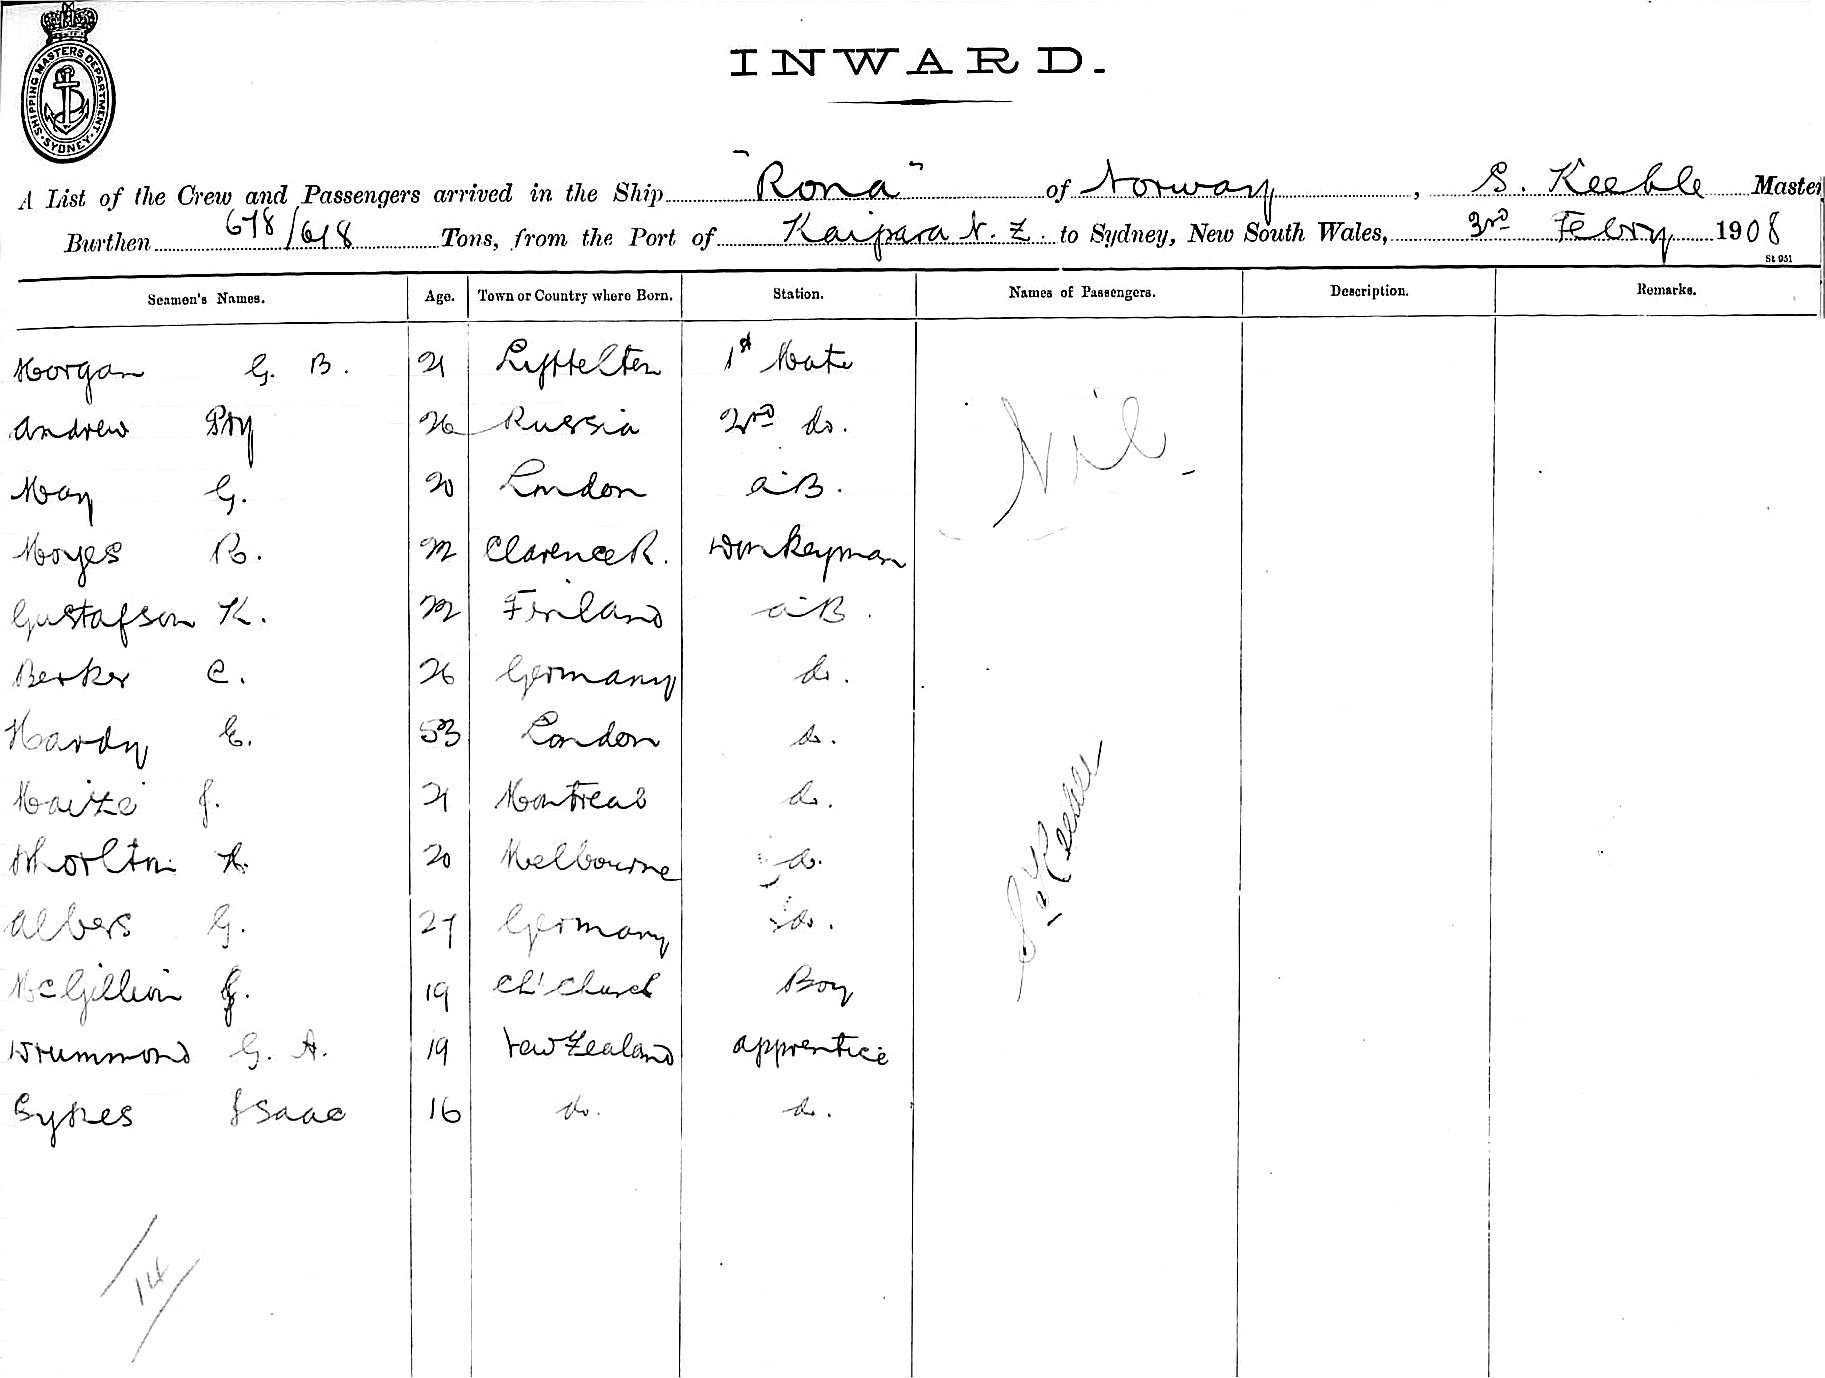 SHIPPING MASTERS DEPARTMENT. SYDNEY
INWARD.
A List of the Crew and Passengers arrived in the Ship "Rona" of Norway, S. Keeble Master
Burthen 678/618 Tons, from the Port of Kaipara N. Z. to Sydney, New South Wales, 3rd Febry 1908
St 951
Seamen's Names. Age. Town or Country where Born. Station. Names of Passengers. Description. Remarks.
Morgan G. B. 21 Lyttelton 1st Mate
Andrew 26 Russia 2nd do. Nil
May G. 20 London AB.
Moyes R. 22 Clarence R. Donkeyman
Gustafson K. 22 Finland AB.
Berker C. 26 Germany do.
Hardy E. 53 London do.
J. 21 Montreal do.
A. 20 Melbourne do.
S. Keeble
Albers G. 27 Germany do.
J. 19 Ch'Church Boy
Drummond G. A. 19 New Zealand apprentice
Sykes Isaac 16 do. do.
14